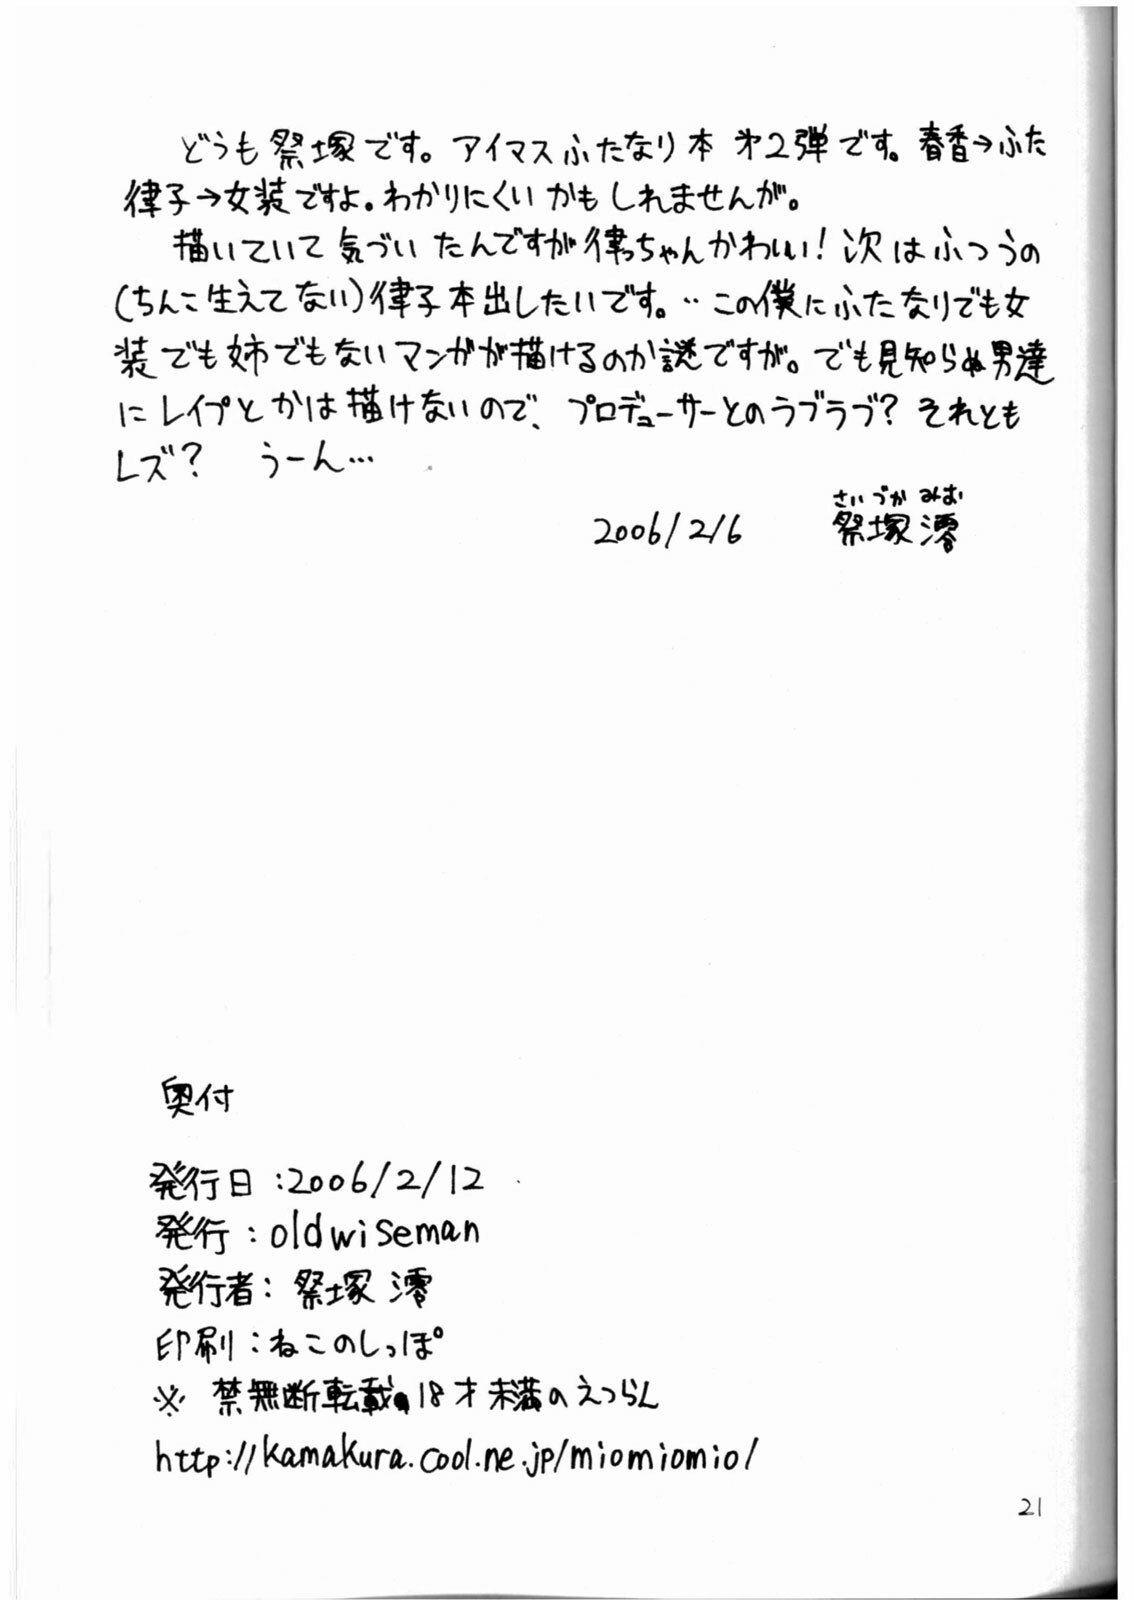 どうも祭塚です。アイマスふたなり本 オ2弾です。春香→ふた
律子→女装ですよ。わかりにくいかもしれませんが。
描いていて気づいたんですが律っちゃんかわいい!次はふつうの
(ちんこ生えてない)律子本出したいです。‥この僕にふたなりでも女
装でも姉でもないマンガが描けるのか謎ですが。でも見知らぬ男達
にレイプとかは描けないので、プロデューサーとのラブラブ?それとも
レズ? うーん…
さいづか みお
2006/2/6 祭塚 澪
奥付
発行日:2006/2/12
発行:oldwiseman
発行者:祭塚 澪
印刷:ねこのしっぽ
※ 禁無断転載 18才未満のえつらん
http://kamakura.cool.ne.jp/miomiomio/
21